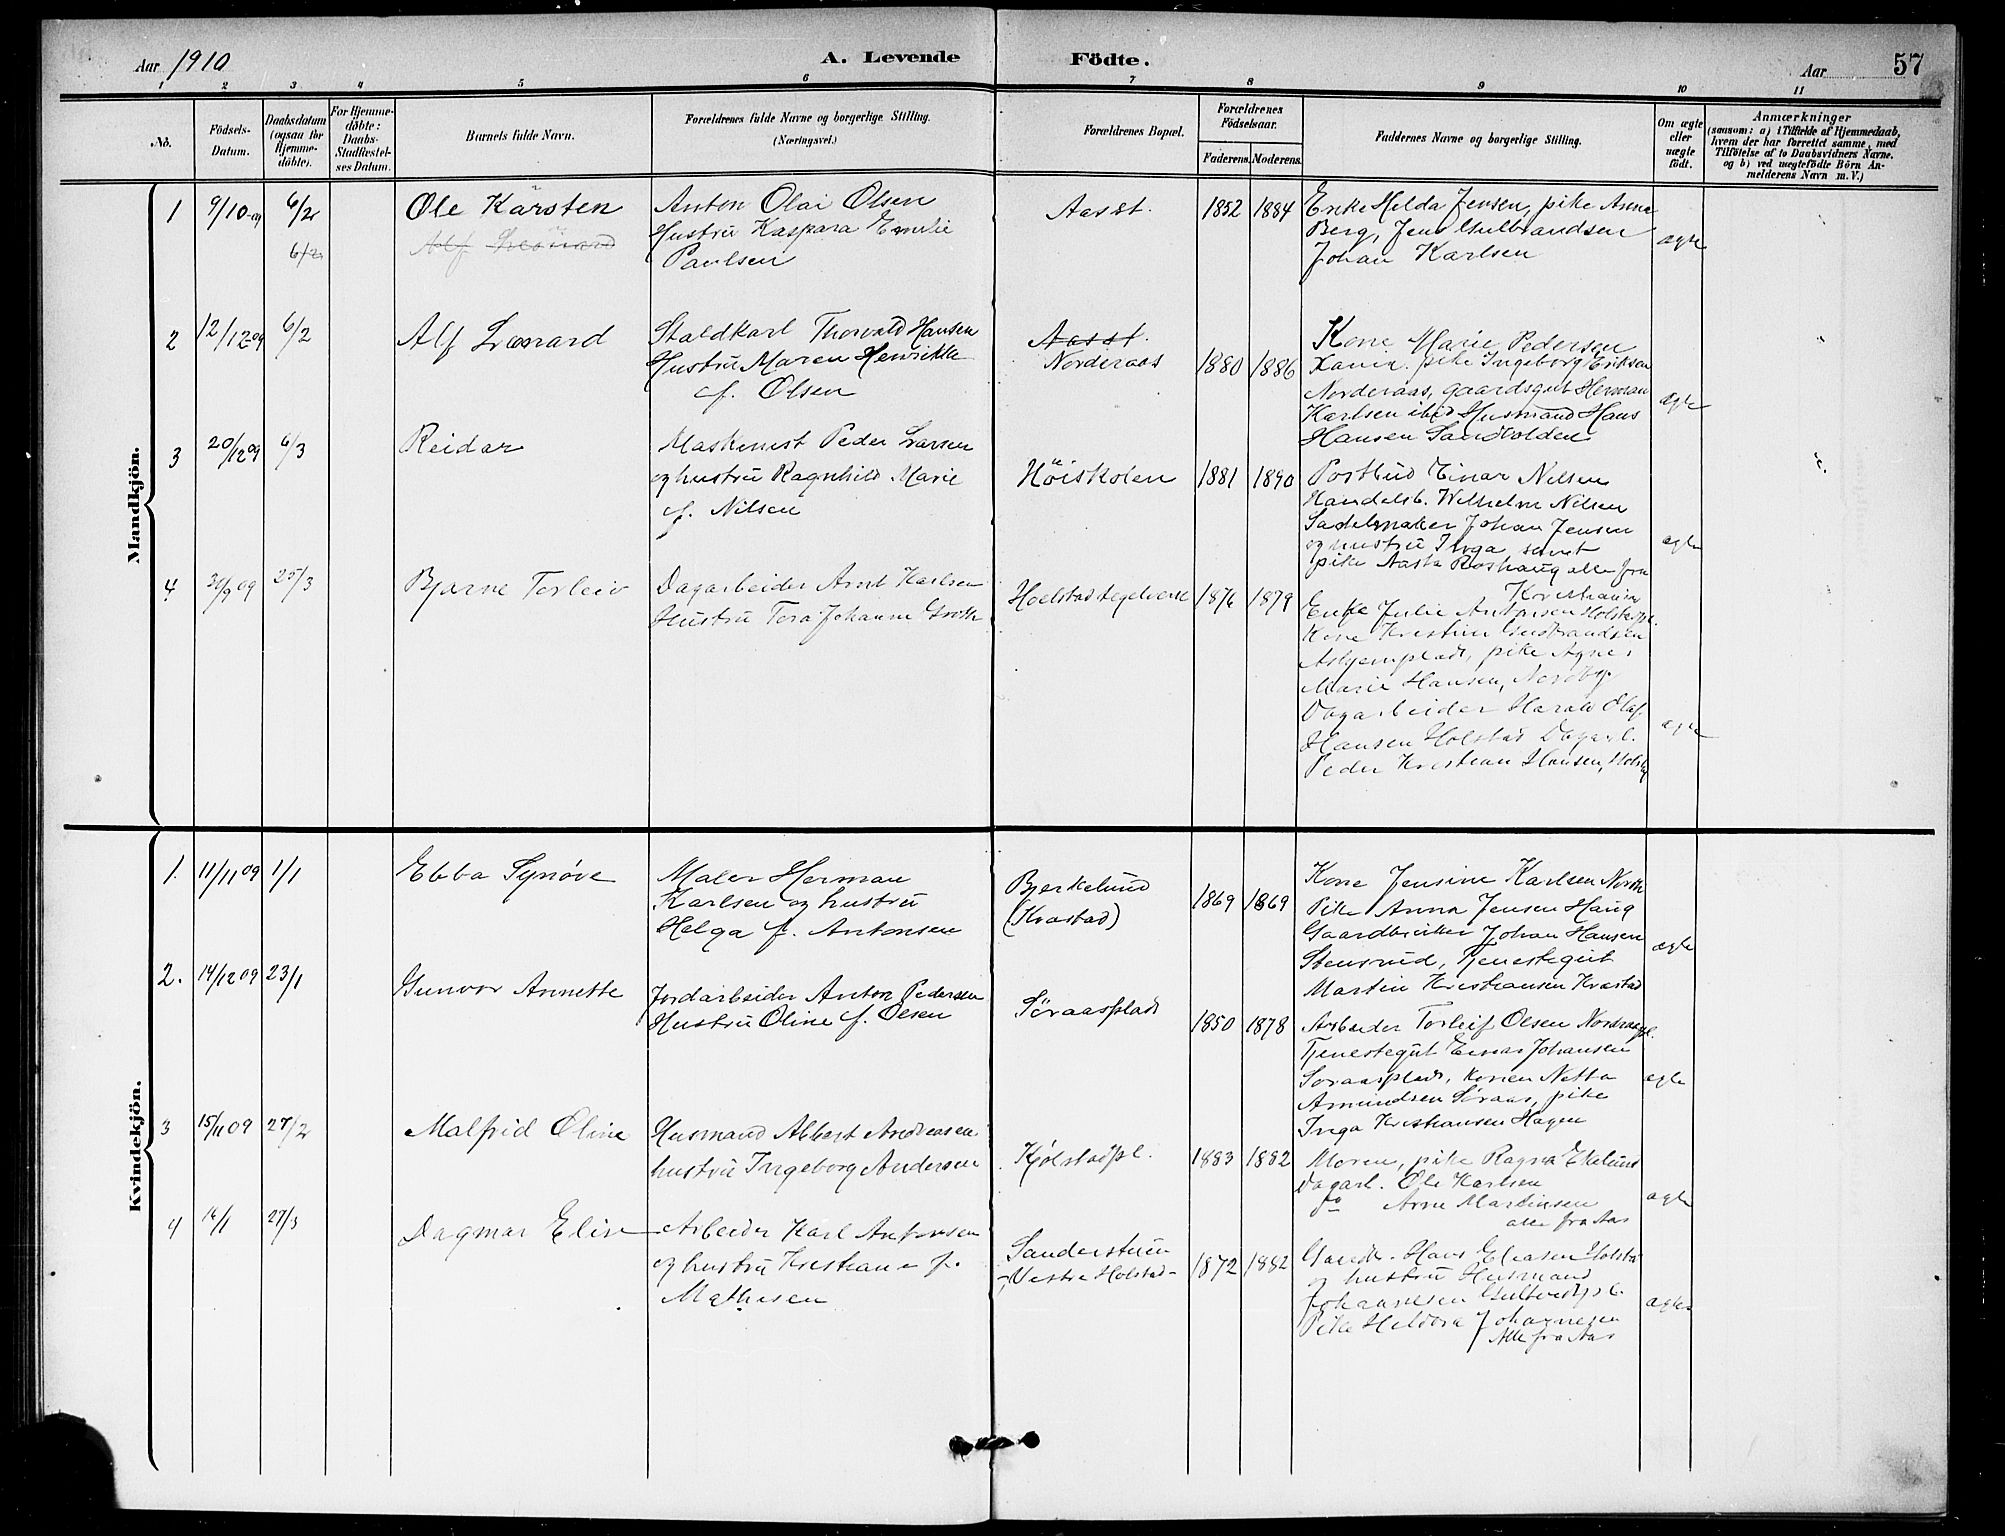 Aar 1910
A. Levende Födte.
Aar 57
1 2 3 4 5 6 7 8 9 10 11
No.
Födsels-Datum.
Daabsdatum (ogsaa for Hjemme-døbte).
For Hjemme-døbte: Daabs-Stadfæstel-ses Datum.
Barnets fulde Navn.
Forældrenes fulde Navne og borgerlige Stilling.
(Næringsvei.)
Forældrenes Bopæl.
Forældrenes Födselsaar.
Faderens. Moderens.
Faddernes Navne og borgerlige Stilling.
Om ægte eller uægte født.
Anmærkninger
(saasom: a) i Tilfælde af Hjemmedaab,
hvem der har forrettet samme, med
Tilföielse af to Daabsvidners Navne,
og b) ved uægtefödte Börn An-
melderens Navn m. V.)
Mandkjön.
1 9/10-09 6/2 Ole Karsten
6/2 Alf Leonard
Anton Olai Olsen
Hustru Kaspara Emilie
Paulsen
Aasst. 1852 1884
Enke Helda Jensen, pike Anna
Berg, Jens Gulbrandsen
Johan Karlsen
ægte
2 12/12-09 6/2 Alf Leonard
Staldkarl Thorvald Hansen
Hustru Maren Henrikke
f. Olsen
Aasst.
Norderaas 1880 1886
Kone Marie Pedersen
pike Ingeborg Eriksen
Norderaas, gaardsgut Herman
Karlsen ibid Husmand Hans
Hansen Sandvolden
ægte
3 20/12 09 6/3 Reidar
Maskinist Peder Larsen
og hustru Ragnhild Marie
f. Nilsen
Höiskolen 1881 1890
Postbud Einar Nilsen
Handelsb. Wilhelm Nilsen
Sadelmaker Johan Jensen
og hustru Inga samt
pike Aasta Roshaug alle fra
Kristiania
ægte
4 30/9 09 25/3 Bjarne Torleiv
Dagarbeider Arnt Karlsen
Hustru Tora Johanne Groth
Holstad teglverk 1876 1879
Enke Julie Antonsen Holstadpl.
Kone Kristine Gulbrandsen
pike Agnes
Marie Hansen, Nordby
Dagarbeider Harald Olaf
Hansen Holstad Dagarb.
Peder Kristian Hansen, Holstad
ægte
Kvindekjön.
1. 11/11 09 1/1 Ebba Synöve
Maler Herman
Karlsen og hustru
Helga f. Antonsen
Bjerkelund
(Krastad) 1869 1869
Kone Jensine Karlsen
Pike Anna Jensen Haug
Gaardbruker Johan Hansen
Stensrud, Tjenestegut
Martin Kristiansen Krastad
ægte
2. 14/12 09 23/1 Gunvor Annette
Jordarbeider Anton Pedersen
Hustru Oline f. Olsen
Söraasplads 1850 1878
Arbeider Torleif Olsen
Tjenestegut Einar Johansen
Söraasplads, konen Netta
Amundsen Söraas, pike
Inga Kristiansen Hagen
ægte
3 15/11 09 27/2 Malfrid Oline
Husmand Albert Andreasen
hustru Ingeborg Andersen
Kjölstadpl. 1883 1882
Moren, pike Ragna Ekelund
Dagarb. Ole Karlsen
do Arne Martinsen
alle fra Aas
ægte
4 14/1 27/3 Dagmar Elise
Arbeider Karl Antonsen
og hustru Kristiane f.
Mathisen
Sanderstuen
Vestre Holstad 1872 1882
Gaardb. Hans Eliasen Holstad
og hustru Husmand
Johannesen
Pike Heldora Johannesen
Alle fra Aas
ægte